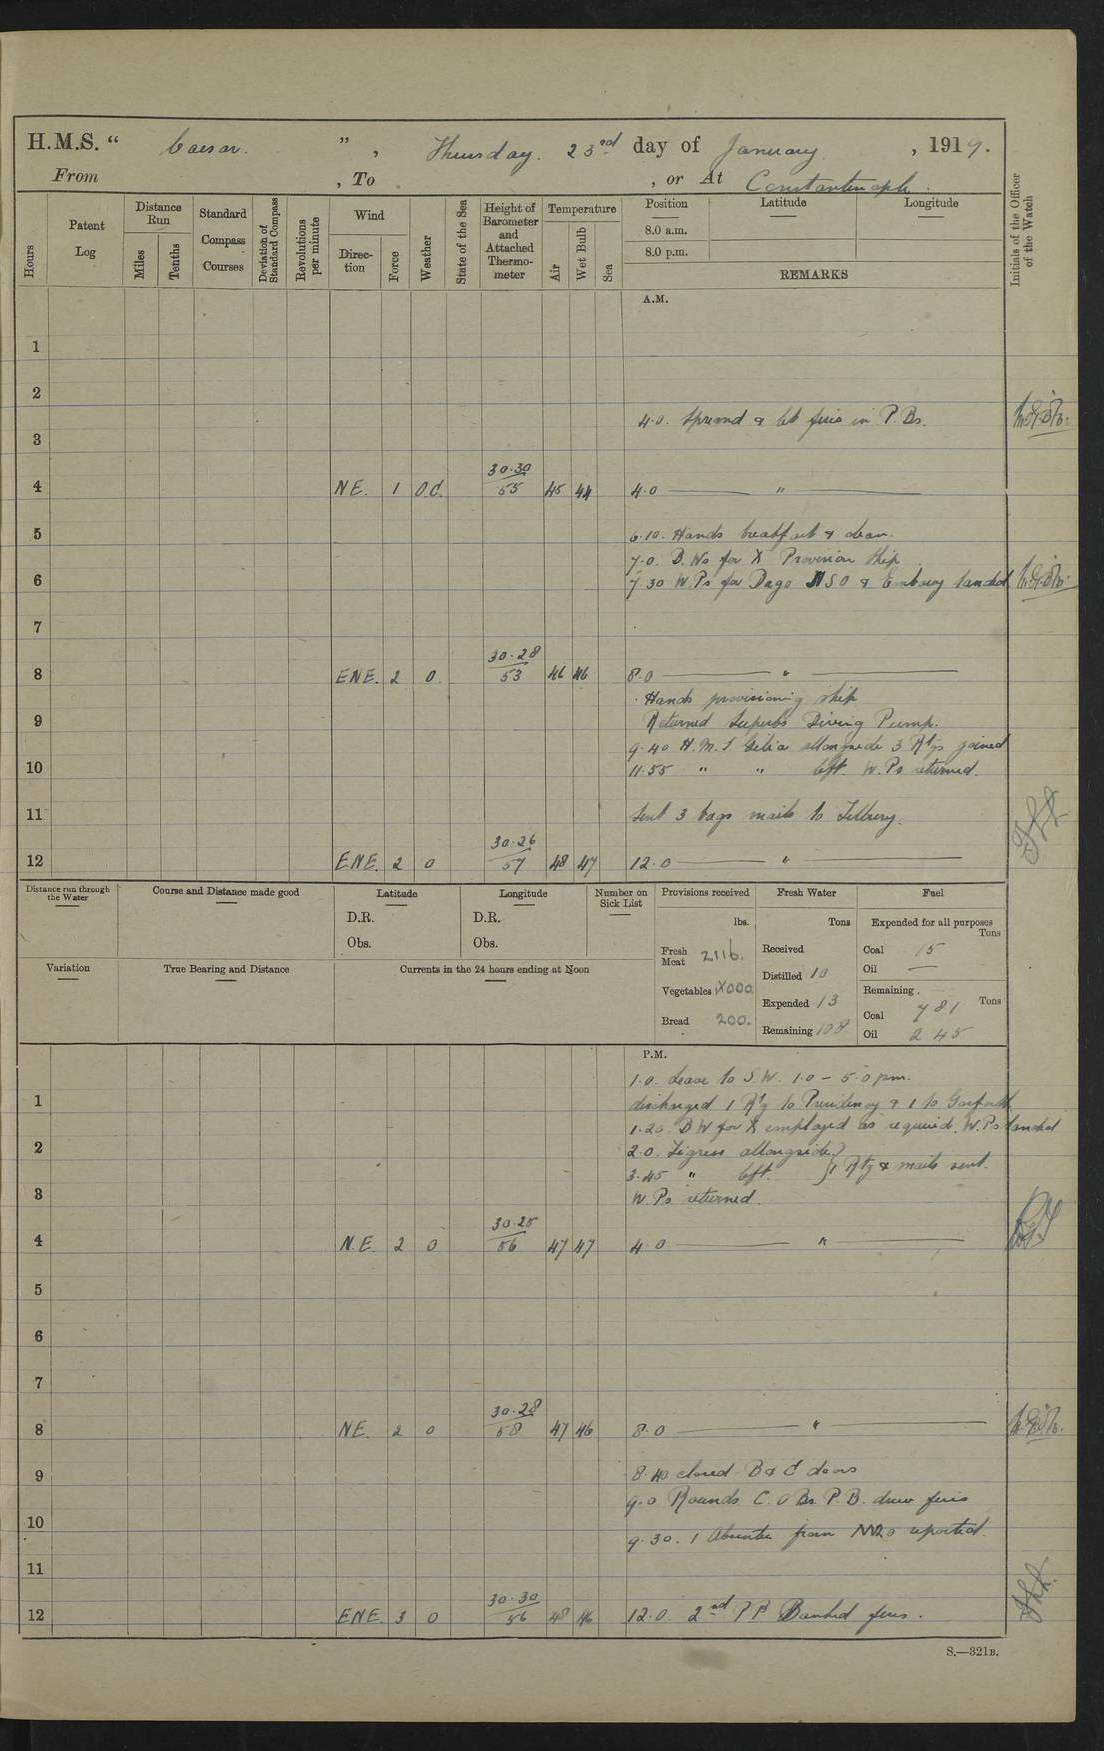 H.M.S. “ Caesar. ” , Thursday. 23rd day of January , 1919.
From , To , or At Constantinople.
Hours
Patent Log
Distance Run
Miles
Tenths
Standard Compass Courses
Deviation of Standard Compass
Revolutions per minute
Wind
Direction
Force
Weather
State of the Sea
Height of Barometer and Attached Thermometer
Temperature
Air
Wet Bulb
Sea
Position Latitude Longitude
8.0 a.m.
8.0 p.m.
REMARKS
Initials of the Officer of the Watch
A.M.
1
2
4.0. Spread & lit fires in P. Bs.
3
4 NE. 1 O.C. 30.30 / 55 45 44 4.0 "
5 6.10. Hands breakfast & clean.
7.0. D. Ws for X Provision ship
6 7.30 W.Ps for Dago NSO & Embassy landed
7
8 ENE. 2 0 30.28 / 53 46 46 8.0 "
Hands provisioning ship
9 Returned Superbs Diving Pump.
9.40 H.M.S. allongside 3 Rtgs joined
10 11.55 " " left. W.Ps returned.
11 Sent 3 bags mails to Tilbury.
12 ENE. 2 0 30.26 / 57 48 47 12.0 "
Distance run through the Water
Course and Distance made good
Latitude
D.R.
Obs.
Longitude
D.R.
Obs.
Number on Sick List
Variation
True Bearing and Distance
Currents in the 24 hours ending at Noon
Provisions received
lbs.
Fresh Meat 2116.
Vegetables 000
Bread 200.
Fresh Water
Tons
Received
Distilled 10
Expended 13
Remaining 108
Fuel
Expended for all purposes
Tons
Coal 15
Oil —
Remaining.
Tons
Coal 781
Oil 245
P.M.
1.0. Leave to S.W. 1.0 – 5.0 pm.
1 discharged 1 Rtg to Presidency & 1 to
1.20. DW for X employed as requisite. W.Ps landed
2 2.0. Tigress allongside }
3.45 " left. } 1 Rtg & mails sent.
3 W.Ps returned.
4 N.E. 2 0 30.25 / 56 47 47 4.0 "
5
6
7
8 NE. 2 0 30.28 / 58 47 46 8.0 "
9 8.40 closed B & C doors
9.0 Rounds C.O Bs. P.B. drew fires
10 9.30. 1 Absentee from reported.
11
12 ENE. 3 0 30.30 / 56 48 46 12.0. 2nd PP Banked fires.
S.—321B.